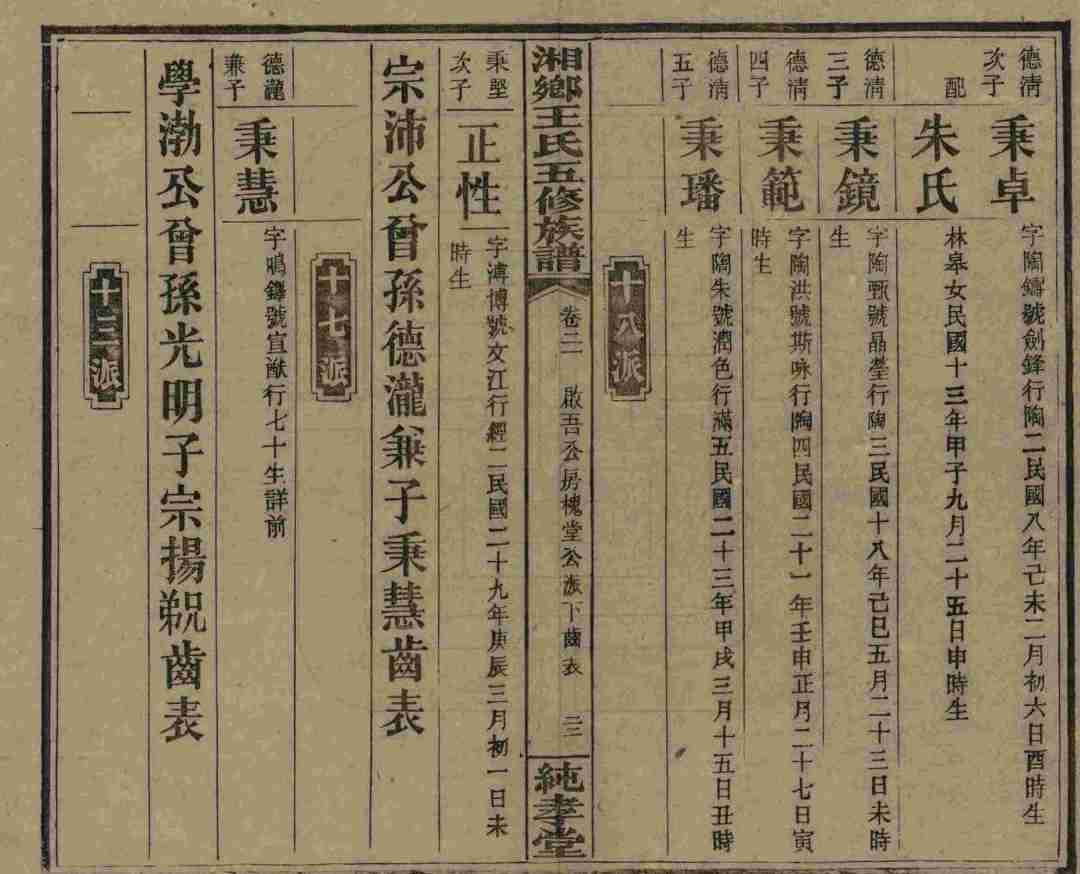 德淸次子
秉卓
字陶鑄號劍鋒行陶二民國八年己未二月初六日酉時生
配
朱氏
林皋女民國十三年甲子九月二十五日申時生
德淸三子
秉鏡
字陶甄號晶瑩行陶三民國十八年己巳五月二十三日未時
生
德淸四子
秉範
字陶洪號斯咏行陶四民國二十一年壬申正月二十七日寅
時生
德淸五子
秉璠
字陶朱號潤色行滿五民國二十三年甲戌三月十五日丑時
生
十八派
湘鄉王氏五修族譜
卷三
啟吾公房槐堂公派下齒表
三
純孝堂
秉堅次子
正性
字溥博號文江行經二民國二十九年庚辰三月初一日未
時生
宗沛公曾孫德瀧兼子秉慧齒表
十七派
德瀧兼子
秉慧
字鳴鐸號宣猷行七十生詳前
學渤公曾孫光明子宗揚祝齒表
十三派